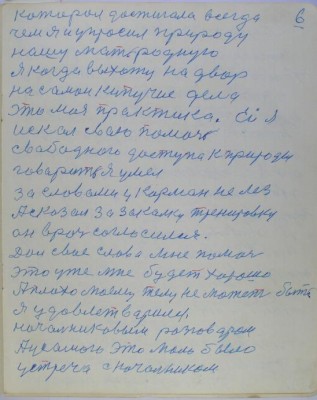 6
которая достигала всегда
чем я и упросил природу
нашу мать родную
Я когда выхожу на двор
на самом кипучие дела
это моя практика. Ей я
искал сваю помочь
свабодного доступа к природы
говорить я умел
за словами у карман не лез
Я сказал за закалку тренировку
он врач согласился.
Дал свое слова мне помоч
это уже мне будет хорошо
А плохо моему телу не может быть
Я удовлетварился
начальниковым разговаром
А у самого это мало было
устреча с начальником